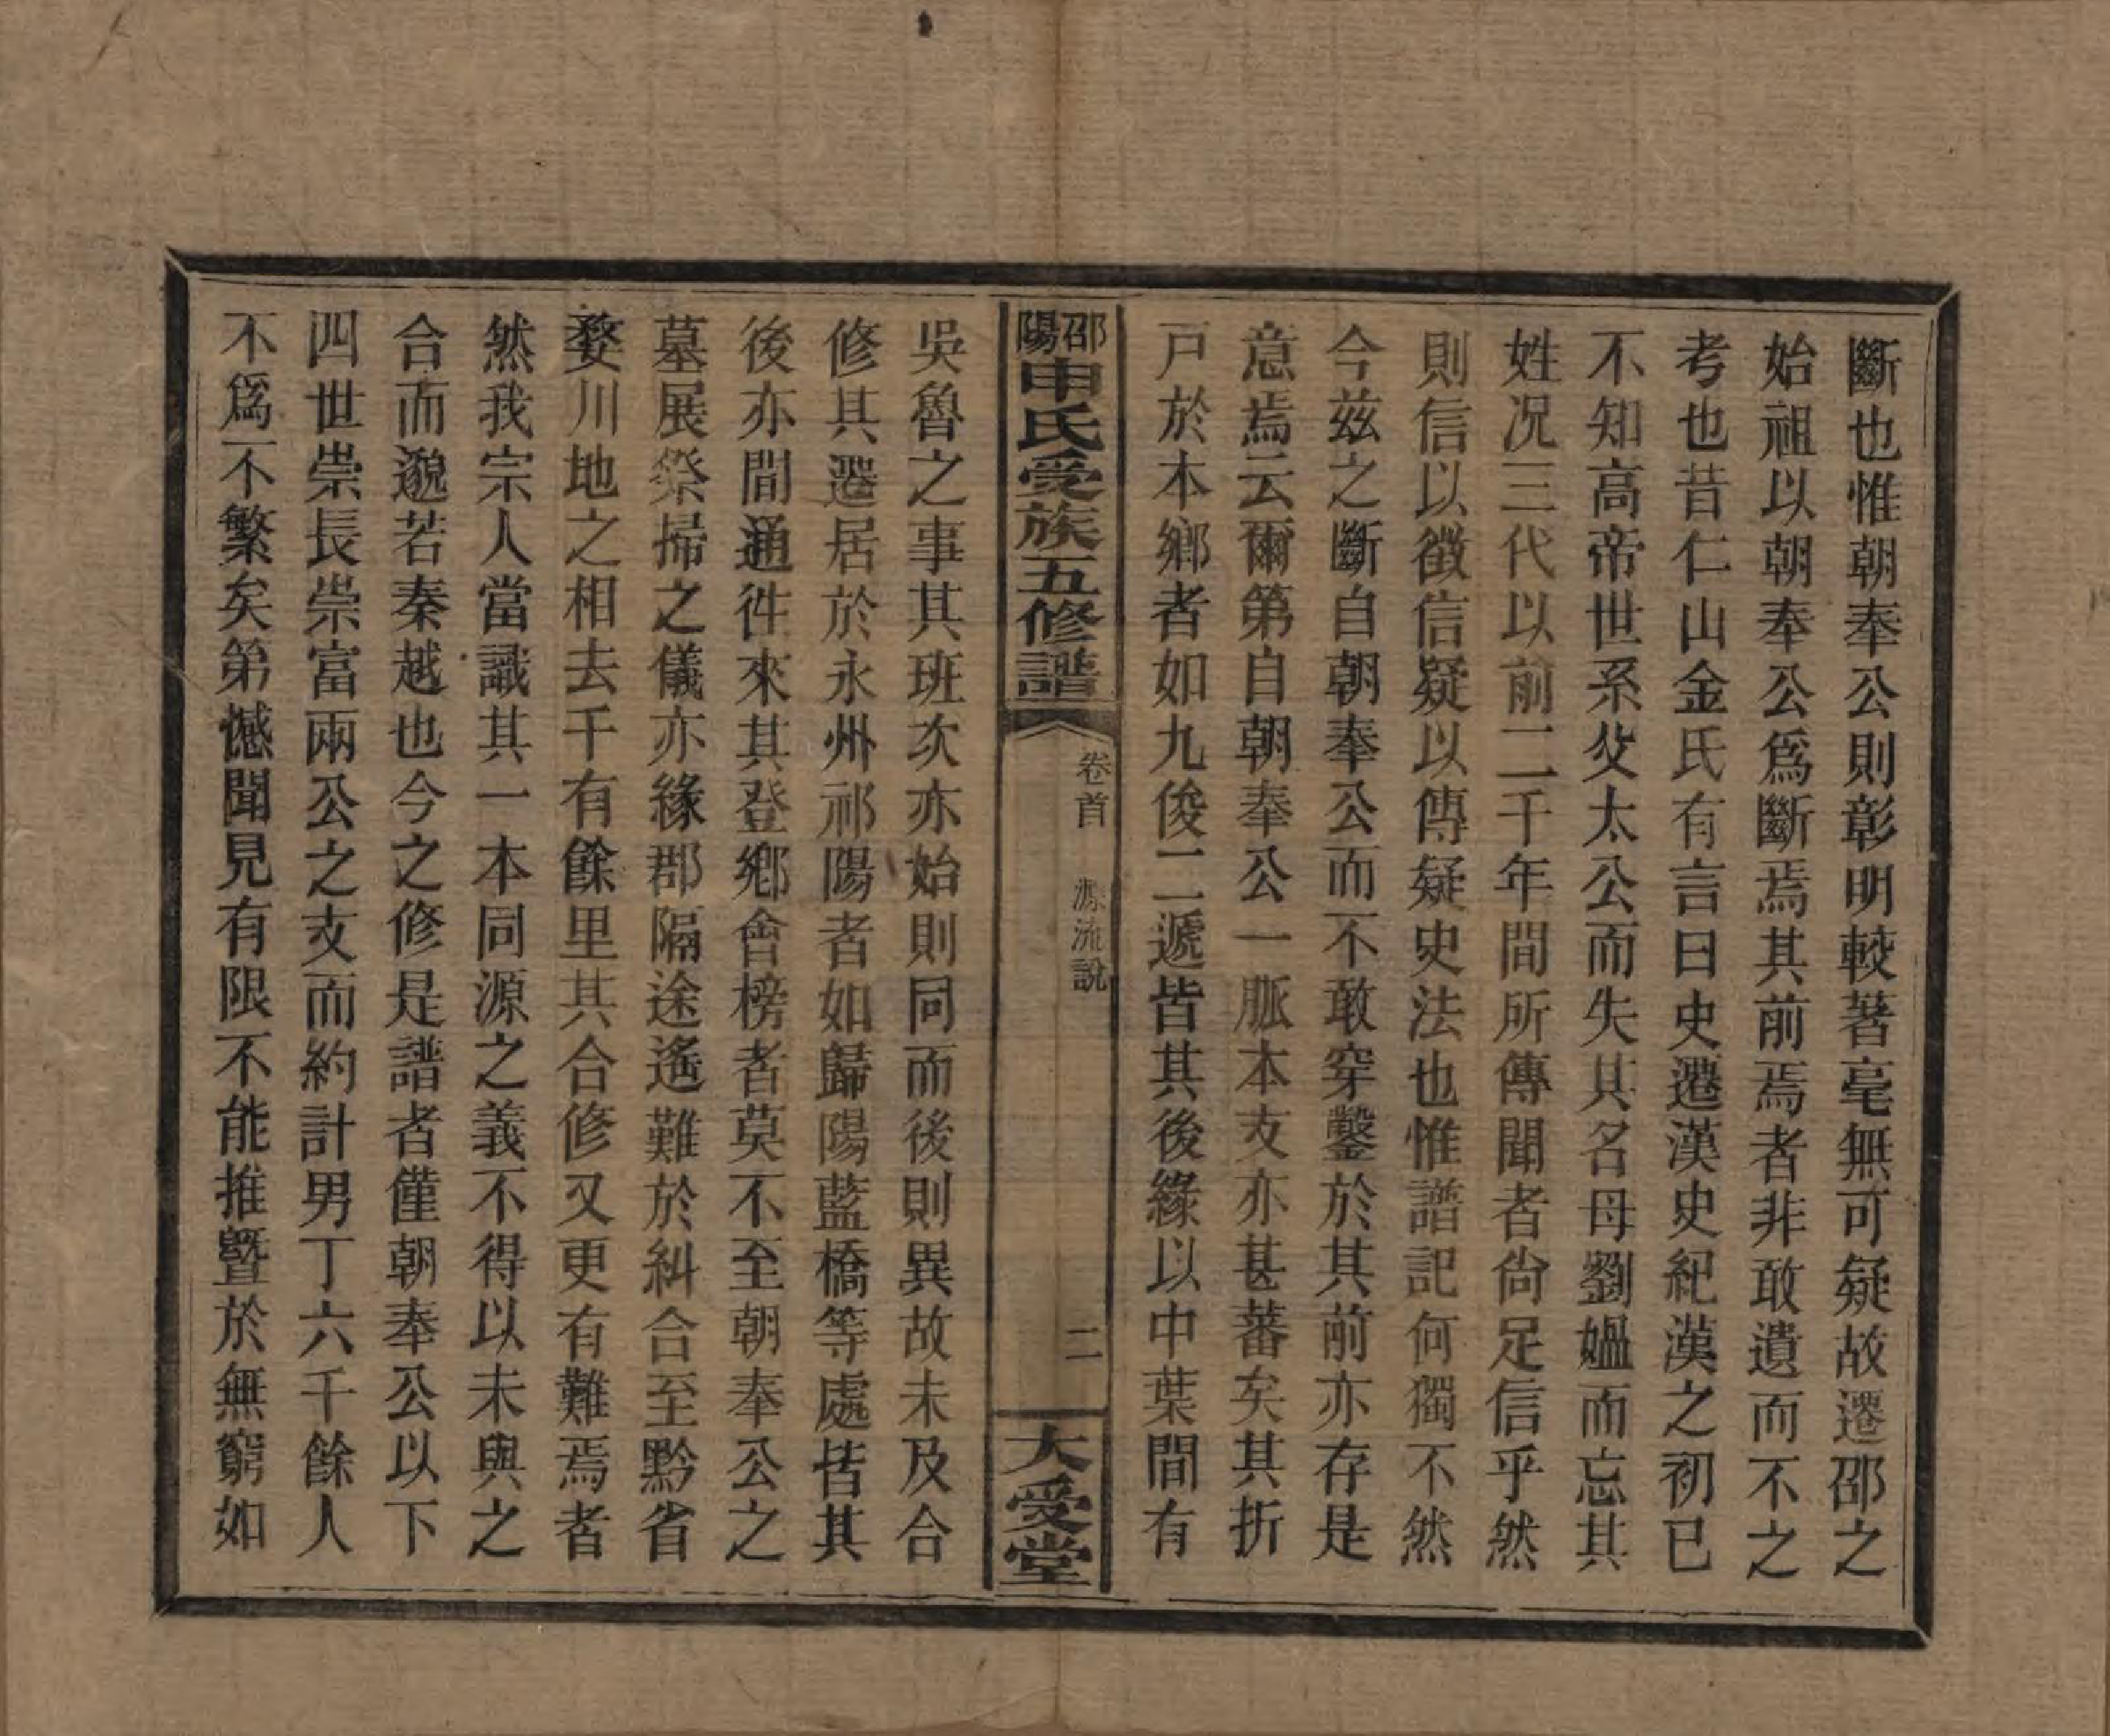 斷也惟朝奉公則彰明較著毫無可疑故遷邵之
始祖以朝奉公爲斷焉其前焉者非敢遺而不之
考也昔仁山金氏有言曰史遷漢史紀漢之初已
不知高帝世系父太公而失其名母劉媼而忘其
姓况三代以前二千年間所傳聞者尙足信乎然
則信以徵信疑以傳疑史法也惟譜記何獨不然
今兹之斷自朝奉公而不敢穿鑿於其前亦存是
意焉云爾第自朝奉公一脈本支亦甚蕃矣其折
戸於本鄉者如九俊二遞皆其後緣以中葉間有
邵陽申氏受族五修譜
卷首 源流說
二
大受堂
吳魯之事其班次亦始則同而後則異故未及合
修其遷居於永州祁陽者如歸陽藍橋等處皆其
後亦間通徃來其登鄉會榜者莫不至朝奉公之
墓展祭掃之儀亦緣郡隔途遙難於糾合至黔省
婺川地之相去千有餘里其合修又更有難焉者
然我宗人當識其一本同源之義不得以未與之
合而邈若秦越也今之修是譜者僅朝奉公以下
四世崇長崇富兩公之支而約計男丁六千餘人
不爲不繁矣第憾聞見有限不能推暨於無窮如